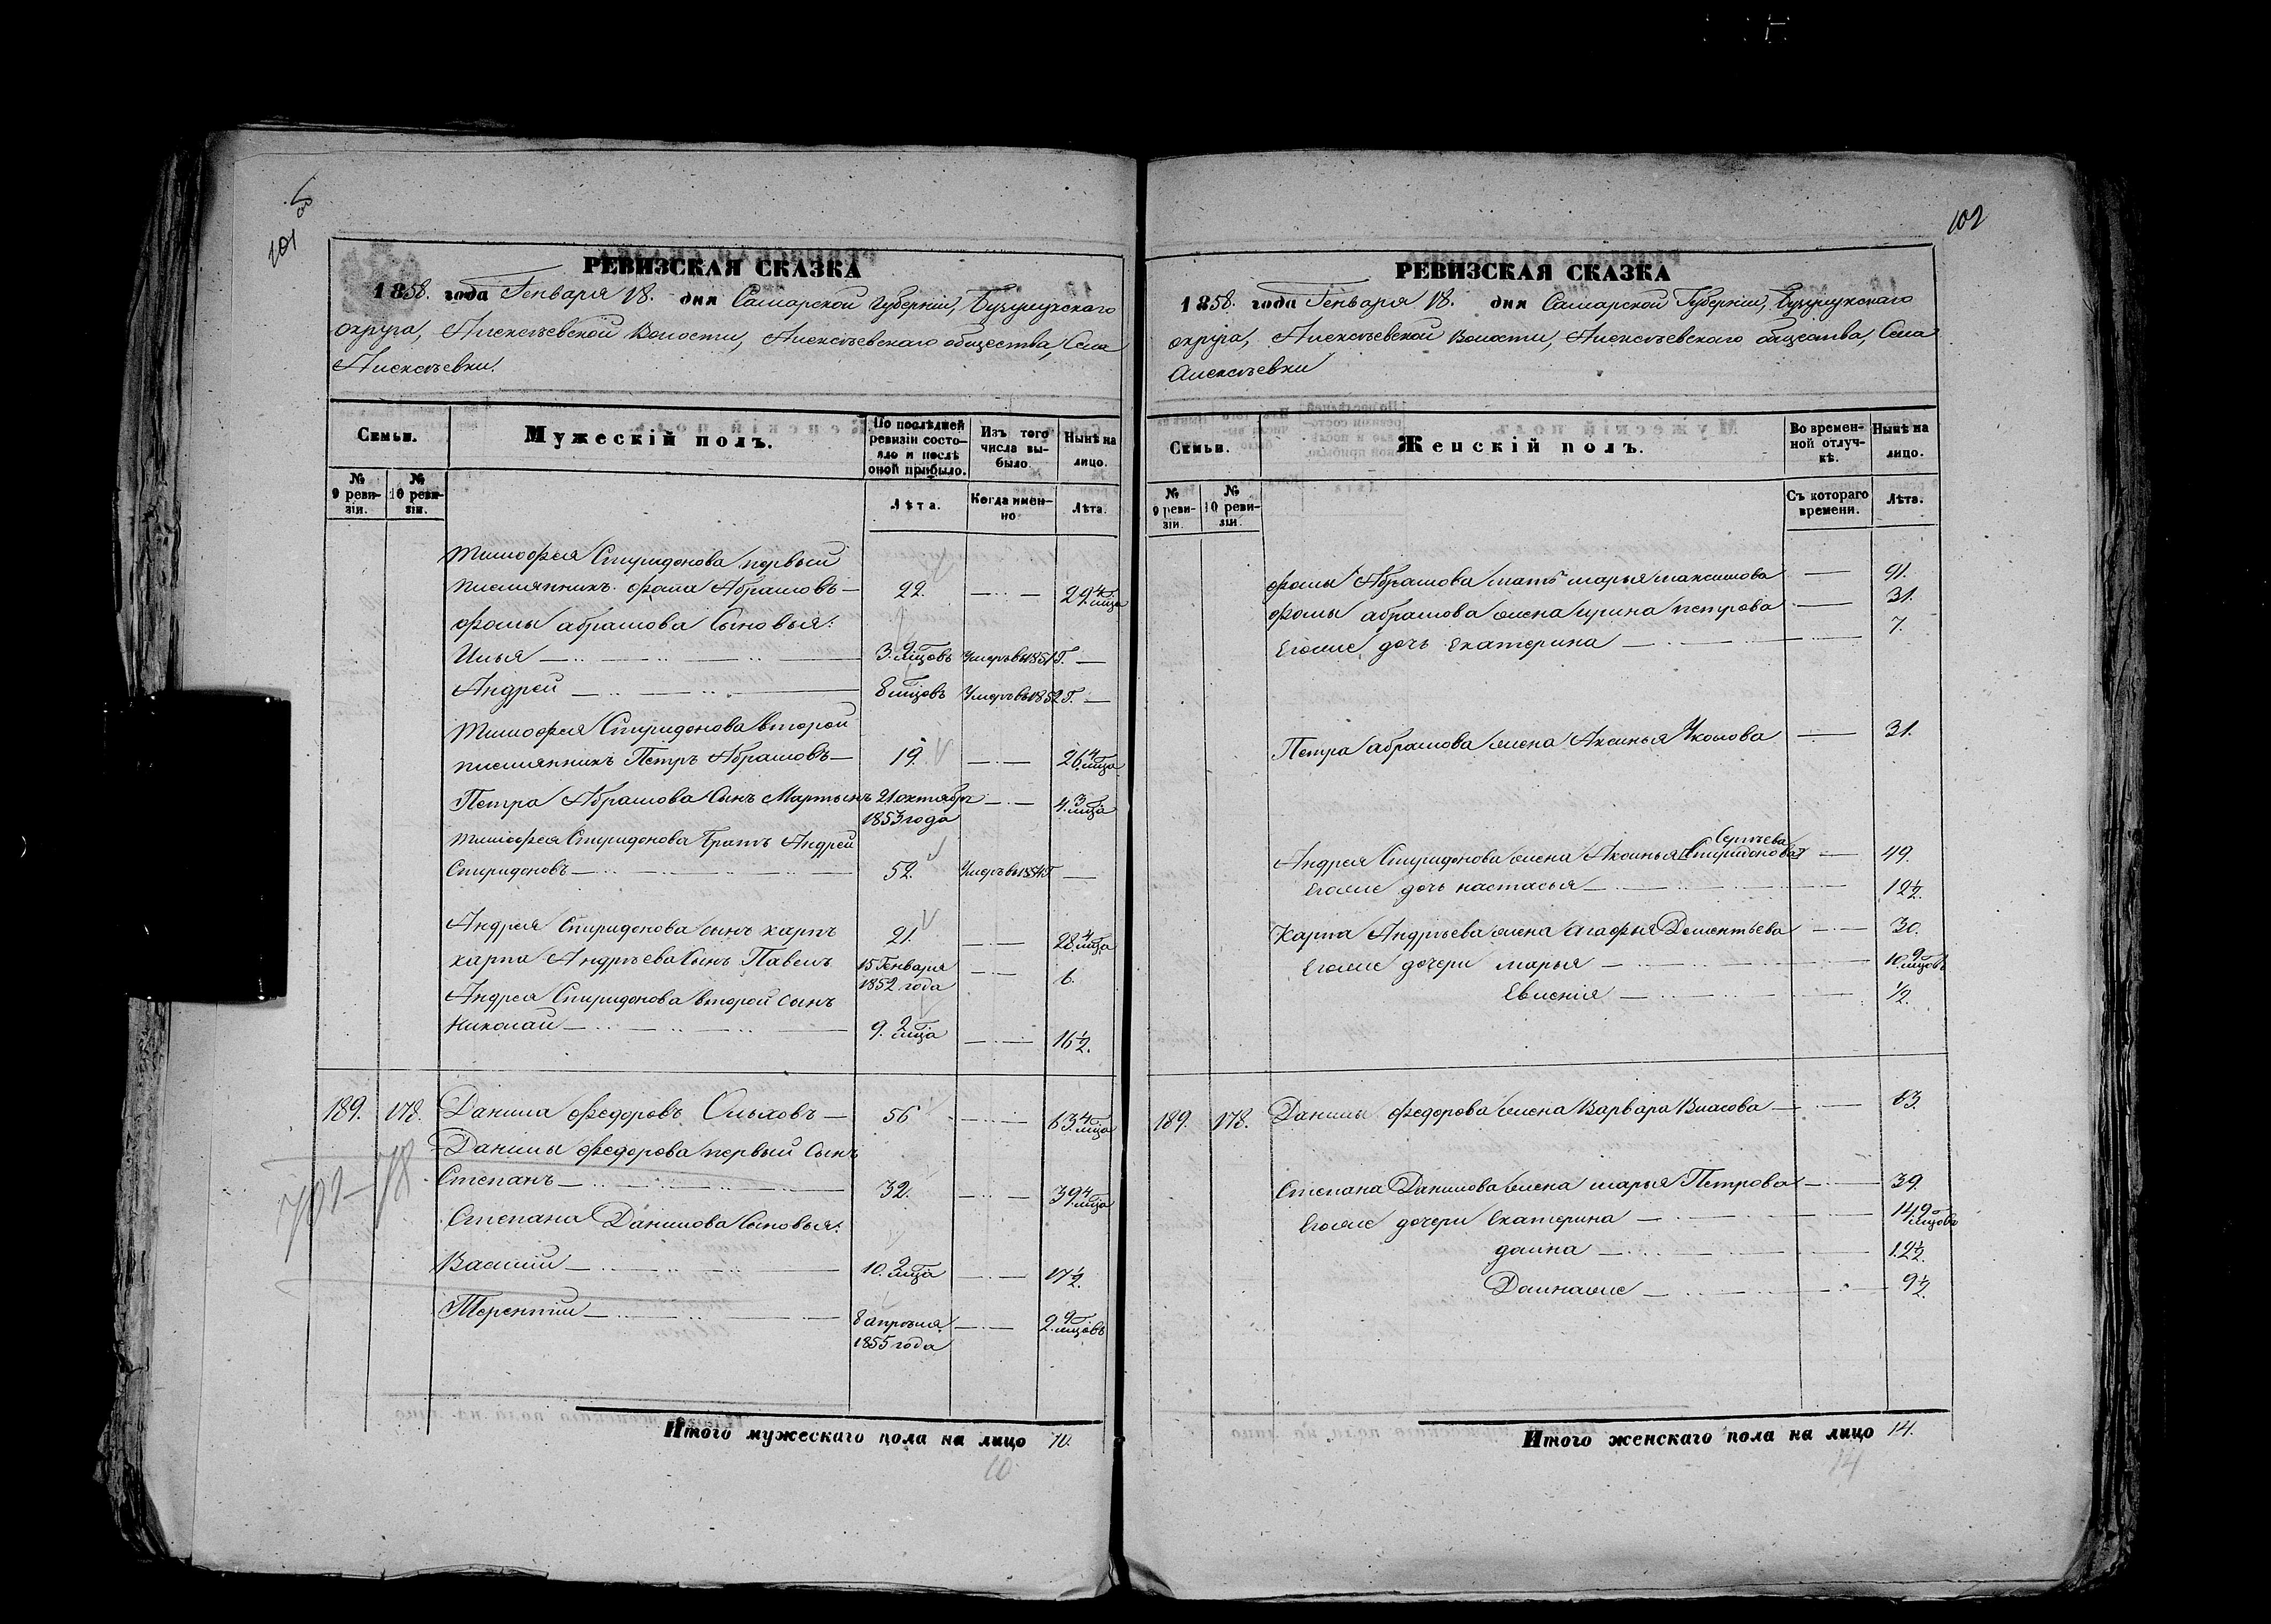 101
РЕВИЗСКАЯ СКАЗКА
1858. года Генваря 18. дня Самарской Губерніи, Бузулукскаго
округа, Алексѣевской Волости, Алексѣевскаго общества, Села
Алексѣевки.
Семьи.
Мужескій полъ.
По послѣдней ревизіи состо-
яло и послѣ
оной прибыло.
Изъ того
числа вы-
было.
Нынѣ на
лицо.
№
9 реви-
зіи.
№
10 реви-
зіи.
Лѣта.
Когда имен-
но
Лѣта.
Тимофея Спиридонова первый
племянникъ фома Абрамовъ — 22. — 29 4/мца
фомы абрамова Сыновья:
Илья — 3. 9/мцовъ Умеръ въ 1851 Г. —
Андрей — 8 мцовъ Умеръ въ 1852 Г. —
Тимофея Спиридонова второй
племянникъ Петръ Абрамовъ — 19. — 26 4/мца
Петра Абрамова Сынъ Мартынъ 21 октября — 4. 3/мца
1853 года
Тимофея Спиридонова Братъ Андрей
Спиридоновъ — 52. Умеръ въ 1854 Г —
Андрея Спиридонова сынъ карпъ 21. — 28 4/мца
карпа Андрѣева Сынъ Павелъ 15 Генваря — 6.
1852 года
Андрея Спиридонова второй сынъ
Николай — 9. 2/мца — 16 1/2.
189. 178. Данила федоровъ Ольховъ — 56 — 63 4/мца
Данилы федорова первый Сынъ
Степанъ — 32. — 39 4/мца
Степана Данилова Сыновья:
Василій — 10. 2/мца — 17 1/2.
Терентій — 8 апрѣля — 2. 9/мцовъ
1855 года
Итого мужескаго пола на лицо 10.
10
102
РЕВИЗСКАЯ СКАЗКА
1858. года Генваря 18. дня Самарской Губерніи, Бузулукскаго
округа, Алексѣевской Волости, Алексѣевскаго общества, Села
Алексѣевки
Семьи.
Женскій полъ.
Во времен-
ной отлуч-
кѣ.
Нынѣ на
лицо.
№
9 реви-
зіи.
№
10 реви-
зіи.
Съ котораго
времени.
Лѣта.
фомы Абрамова мать марья максимова —
фомы абрамова жена ирина петрова — 31.
Егоже дочь Екатерина — 7.
Петра абрамова жена Аксинья — 31.
Сергѣева
Андрея Спиридонова жена Аксинья [Спиридонова] — 49.
Егоже дочь настасья — 12 1/2.
Карпа Андрѣева жена агафья Дементьева — 30.
Егоже дочери марья — 10. 9/мцовъ
Евгенія — 1/2.
189. 178. Данилы федорова жена Варвара Власова — 63.
Степана Данилова жена марья Петрова — 39.
Егоже дочери Екатерина — 14 9/мцовъ
домна — 12 1/2.
Домнаже — 9 1/2.
Итого женскаго пола на лицо 14.
14